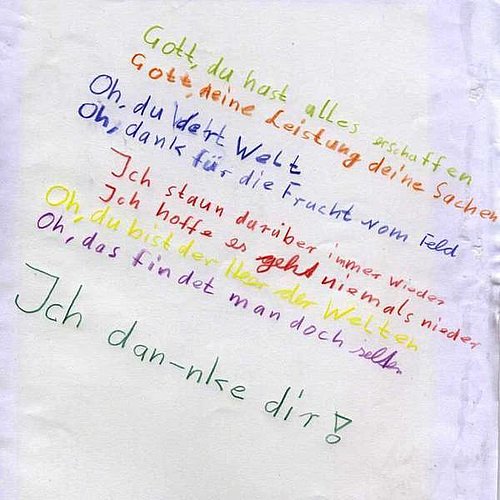 Gott, du hast alles erschaffen
Gott, deine Leistung deine Sachen
Oh, du der Welt
Oh, dank für die Frucht vom Feld
Ich staun darüber immer wieder
Ich hoffe es geht niemals nieder
Oh, du bist der Herr der Welten
Oh, das findet man doch selten
Ich dan-nke dir!